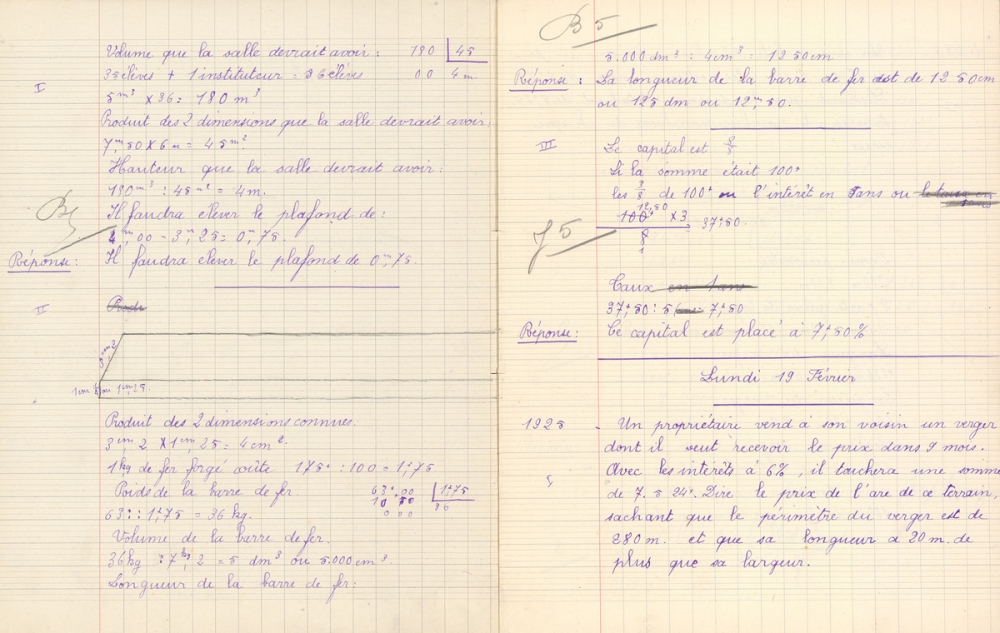 Volume que la salle devrait avoir : 180 | 45
I
35 élèves + 1 instituteur = 36 élèves 00 4 m
5 m³ × 36 = 180 m³
Produit des 2 dimensions que la salle devrait avoir,
7,m50 × 6 m = 45 m².
Hauteur que la salle devrait avoir :
180 m³ : 45 m² = 4 m.
Il faudra élever le plafond de :
4,m00 - 3,m25 = 0,m75.
Réponse : Il faudra élever le plafond de 0,m75.
II
1 cm,25.
Produit des 2 dimensions connues.
3 cm,2 × 1 cm,25 = 4 cm².
1 kg de fer forgé coûte 175f : 100 = 1f,75
Poids de la barre de fer. 63f,00 | 1f75
63f : 1f,75 = 36 kg.
Volume de la barre de fer.
36 kg : 7 kg,2 = 5 dm³ ou 5.000 cm³.
Longueur de la barre de fer :
B 5
5.000 dm³ : 4 cm³ = 1250 cm
Réponse : La longueur de la barre de fer est de 1250 cm
ou 125 dm ou 12,m50.
III
Le capital est
Si la somme était 100f
les 3/8 de 100f ou l'intérêt en 5 ans ou
12,50
100f × 3 37f50.
8
1
Taux
37f50 : 5 = 7f50
Réponse : Le capital est placé à 7f,50 %
Lundi 19 Février
Un propriétaire vend à son voisin un verger
dont il veut recevoir le prix dans 9 mois.
Avec les intérêts à 6%, il touchera une somme
de 7.524f. Dire le prix de l'are de ce terrain,
sachant que le périmètre du verger est de
280 m. et que sa longueur a 20 m. de
plus que sa largeur.